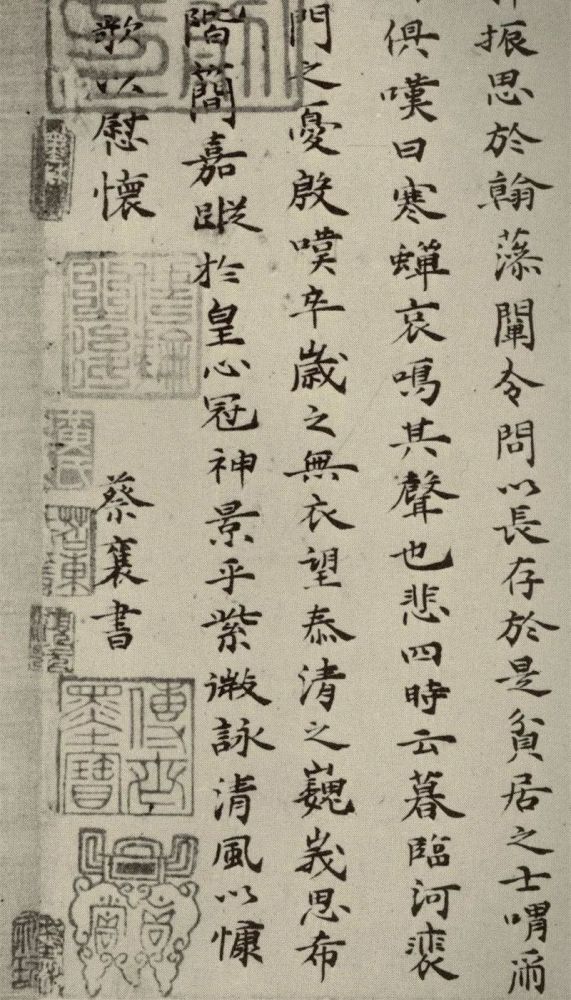 振思於翰藻闡令問以長存於是貧居之士喟
俱嘆曰寒蟬哀鳴其聲也悲四時云暮臨河裵
門之憂殷嘆卒歲之無衣望泰清之巍峩思布
階簡嘉蹤於皇心冠神景乎紫微詠清風以慷
歌以慰懷
蔡襄書